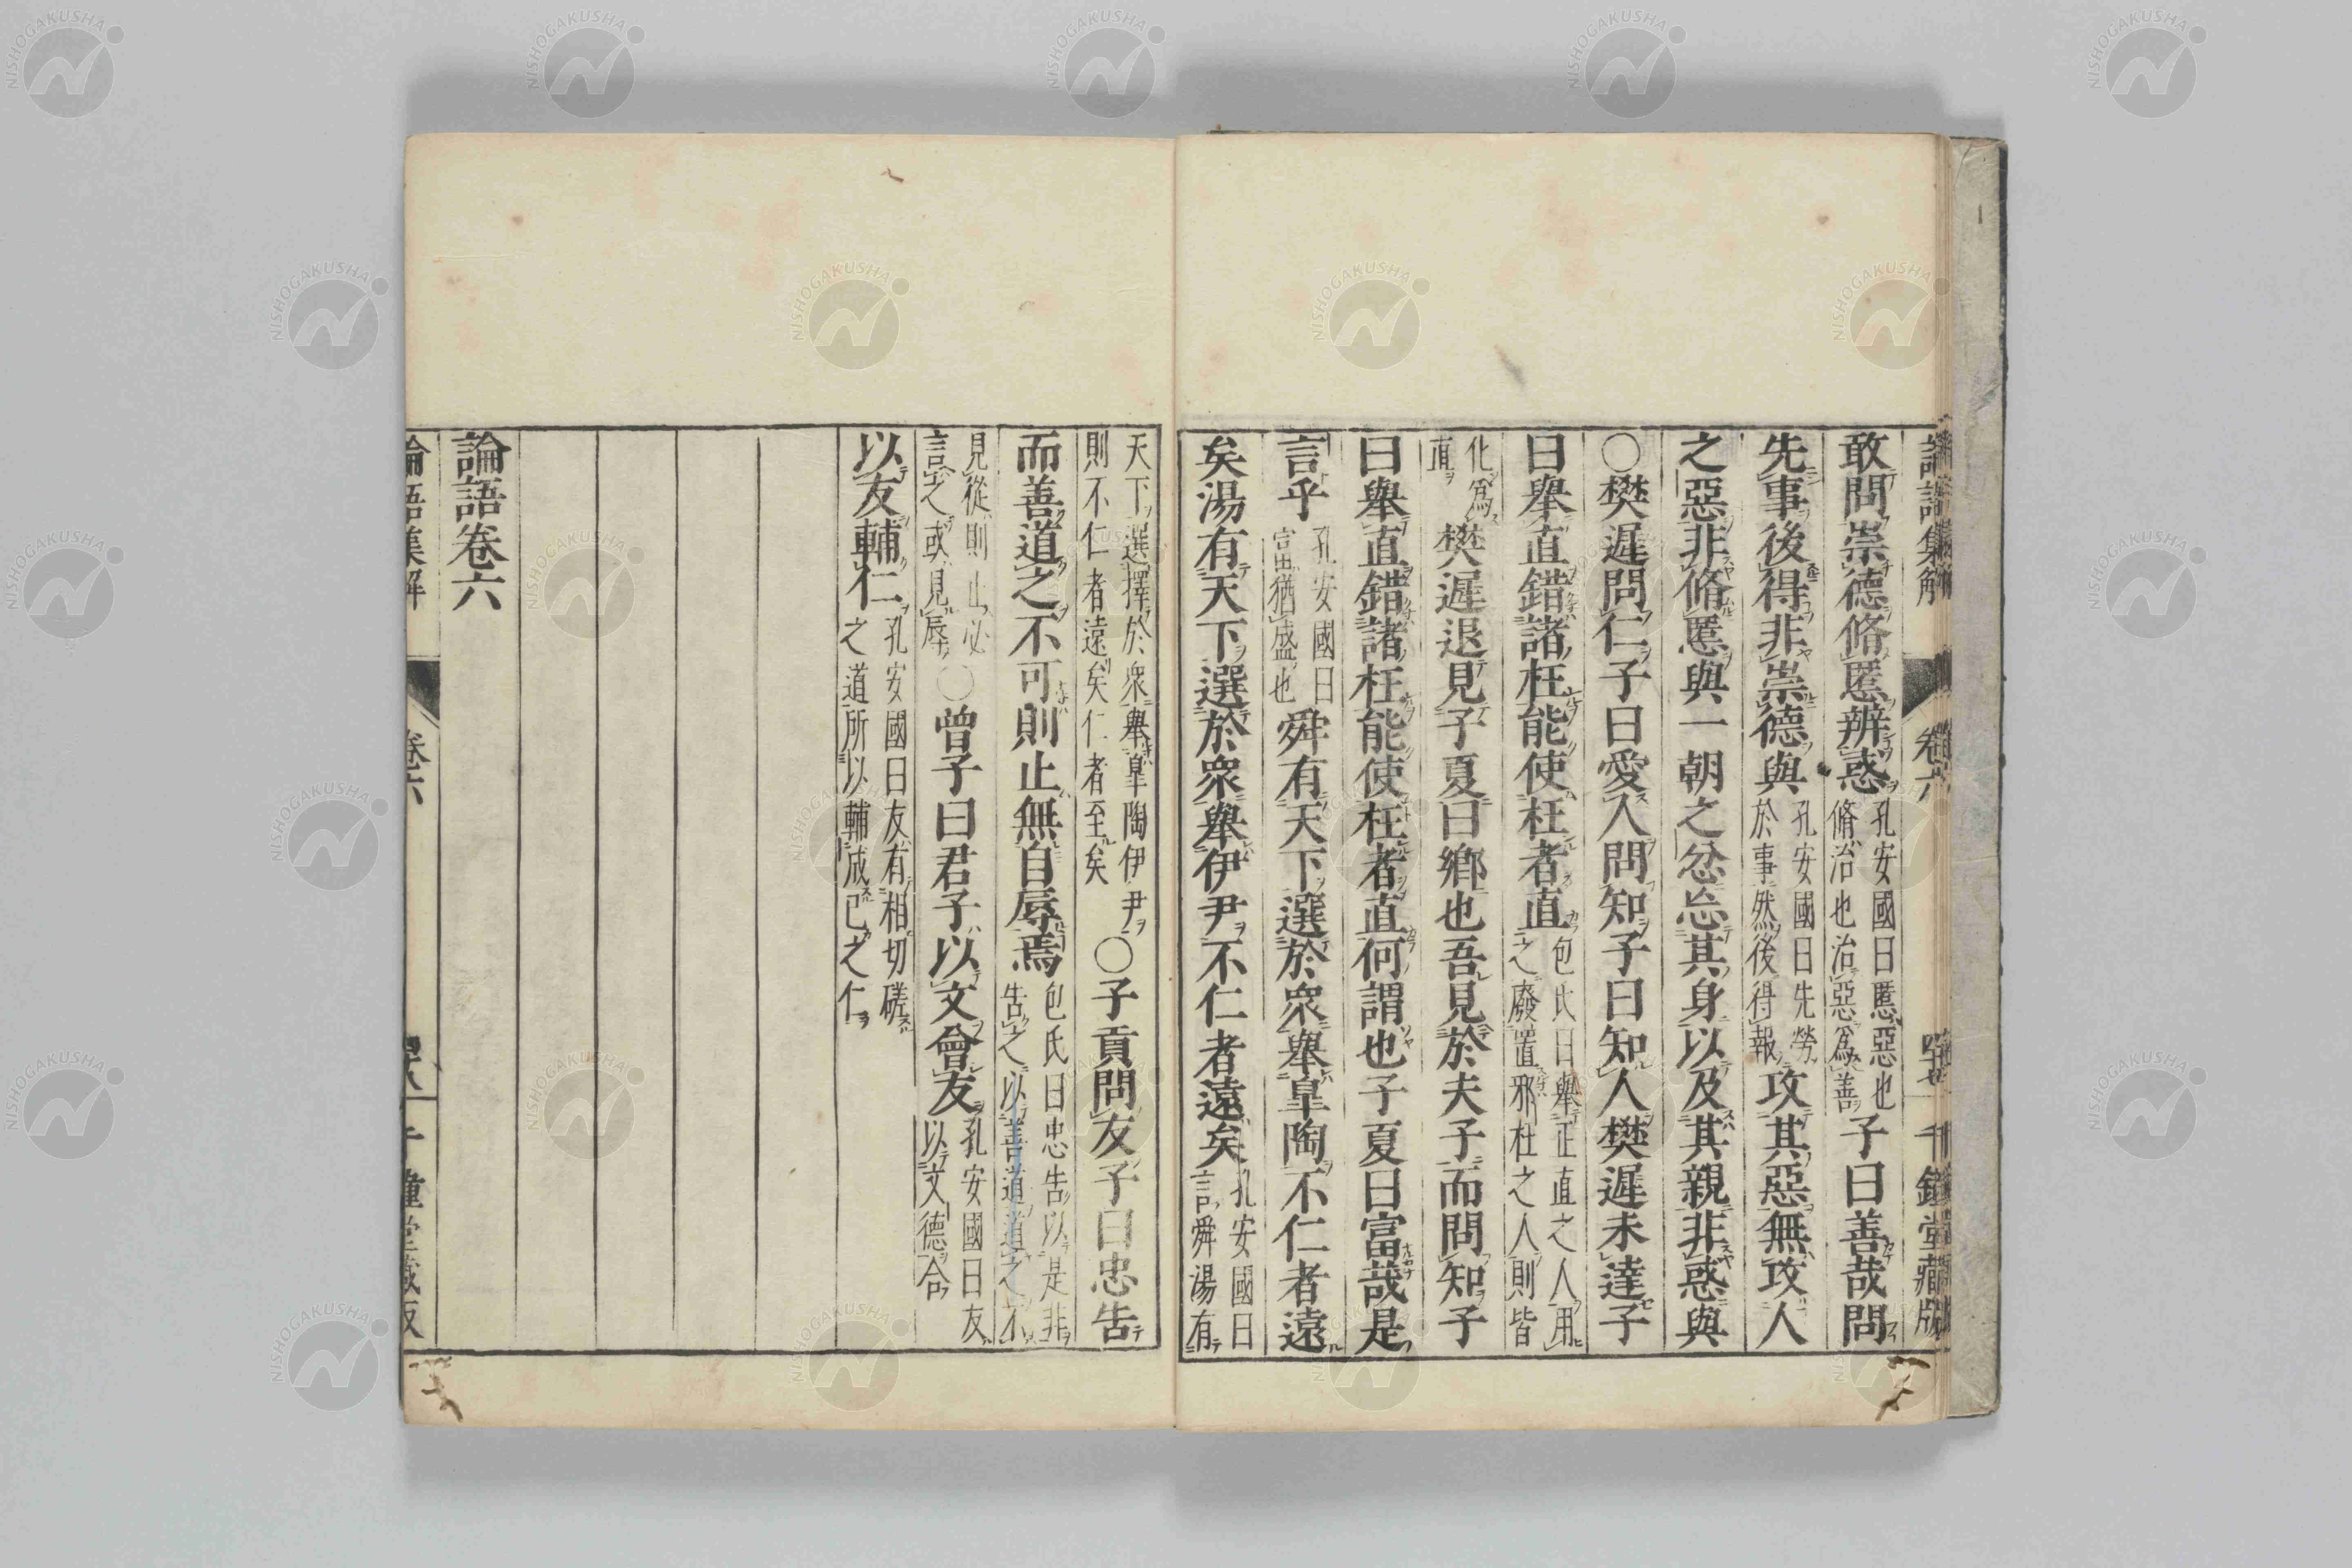 敢問崇德脩慝辨惑孔安國曰慝惡也脩治也治惡爲善子曰善哉問
先事後得非崇德與孔安國曰先勞於事然後得報攻其惡無攻人
之惡非脩慝與一朝之忿忘其身以及其親非惑與
○樊遲問仁子曰愛人問知子曰知人樊遲未達子
曰舉直錯諸枉能使枉者直包氏曰舉正直之人用之廢置邪枉之人則皆
化爲直樊遲退見子夏曰鄕也吾見於夫子而問知子
曰舉直錯諸枉能使枉者直何謂也子夏曰富哉是
言乎孔安國曰富猶盛也舜有天下選於衆舉皐陶不仁者遠
矣湯有天下選於衆舉伊尹不仁者遠矣孔安國曰言舜湯有
天下選擇於衆舉皐陶伊尹則不仁者遠矣仁者至矣○子貢問友子曰忠告
而善道之不可則止無自辱焉包氏曰忠告以是非告之以善道道之不
見從則止必言之或見辱○曾子曰君子以文會友孔安國曰友以文德合
以友輔仁孔安國曰友有相切磋之道所以輔成己之仁
論語卷六
論語集解 卷六 千鍾堂藏版
NISHOGAKUSHA